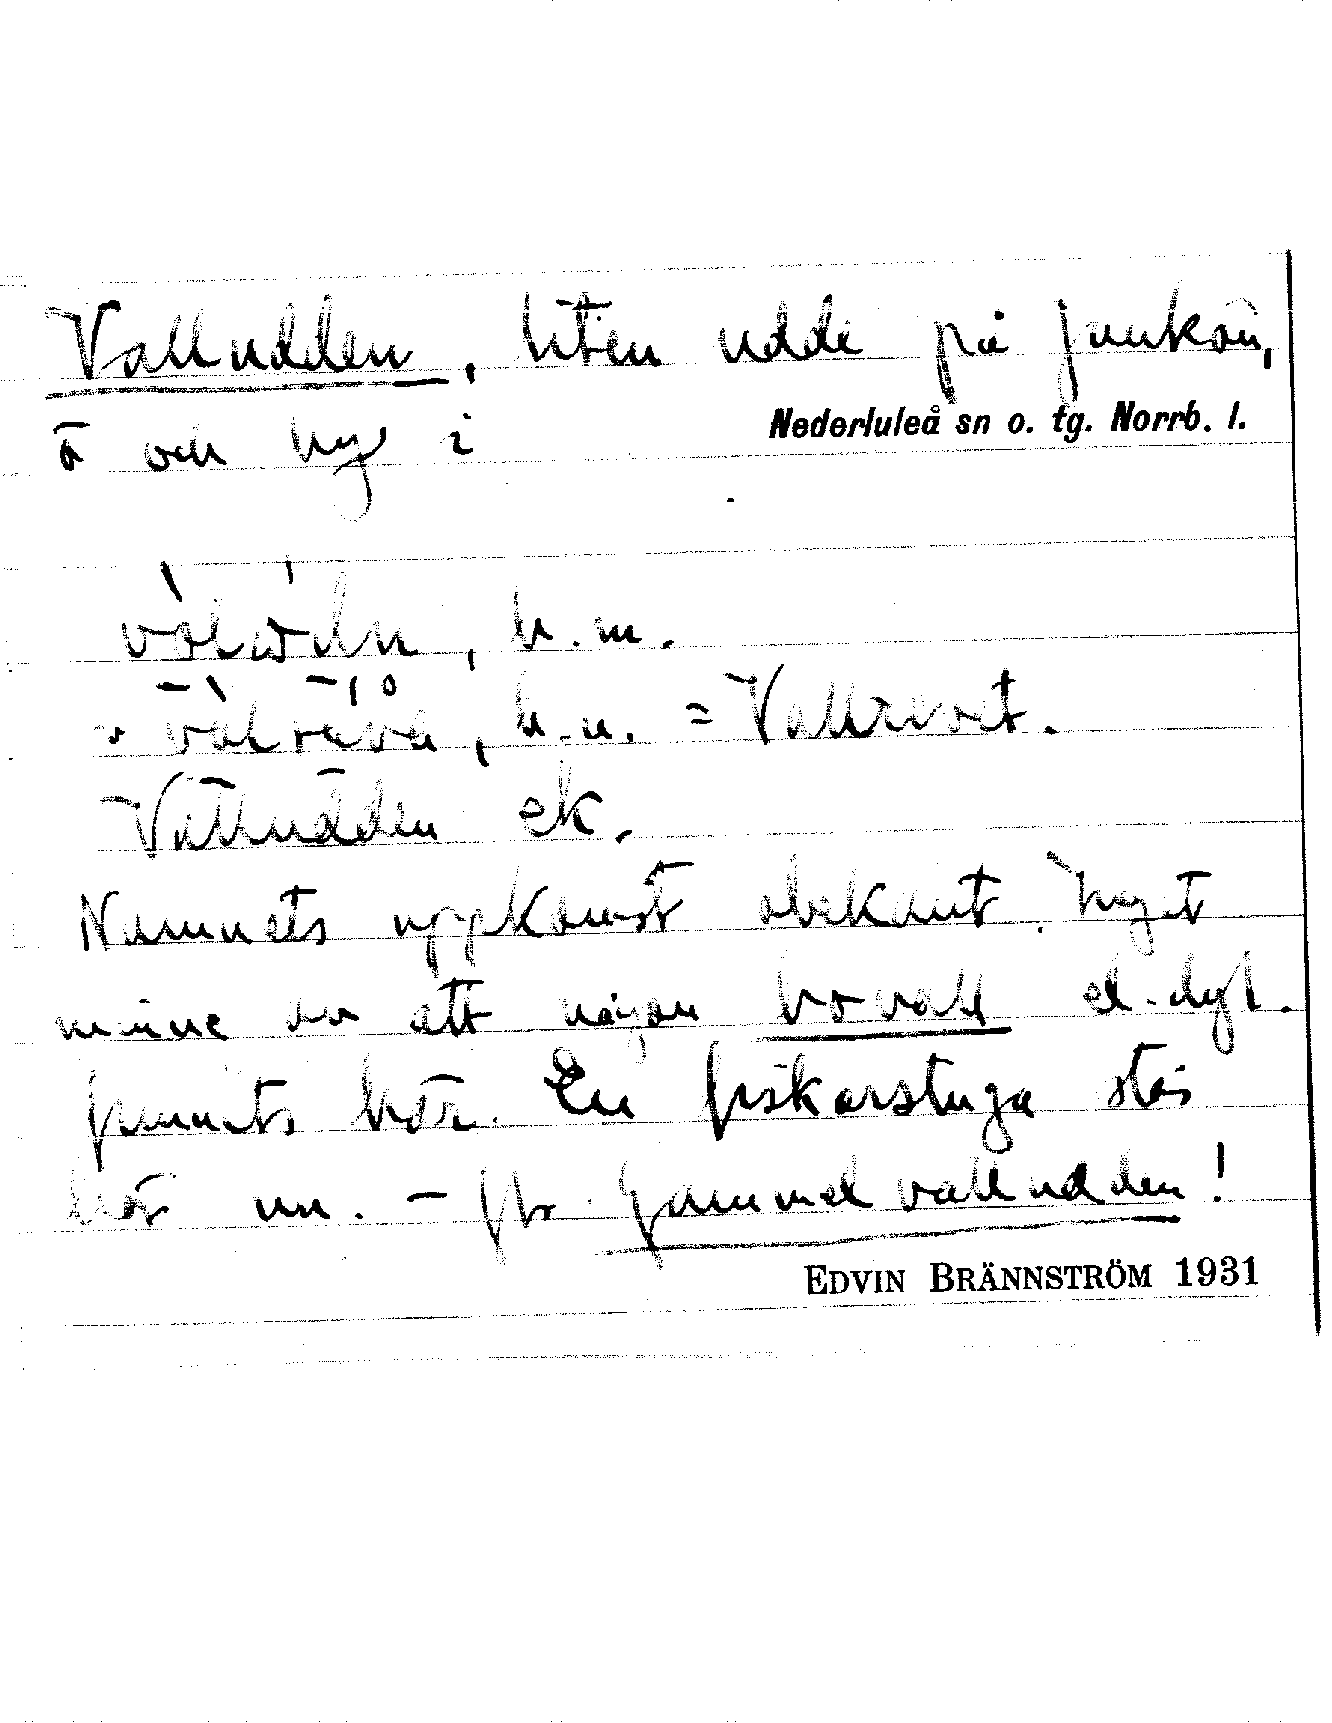 Valludden, liten udde på Junkön,
ö och by i Nederluleå sn o. tg. Norrb. l.
h.m.
h.u. = Vallrevet.
Valludden ek.
Namnets uppkomst obekant. Inget
minne av att någon bovall el. dyl.
funnits här. En fiskarstuga står
här nu. – Jfr Gammelvalludden!
EDVIN BRÄNNSTRÖM 1931